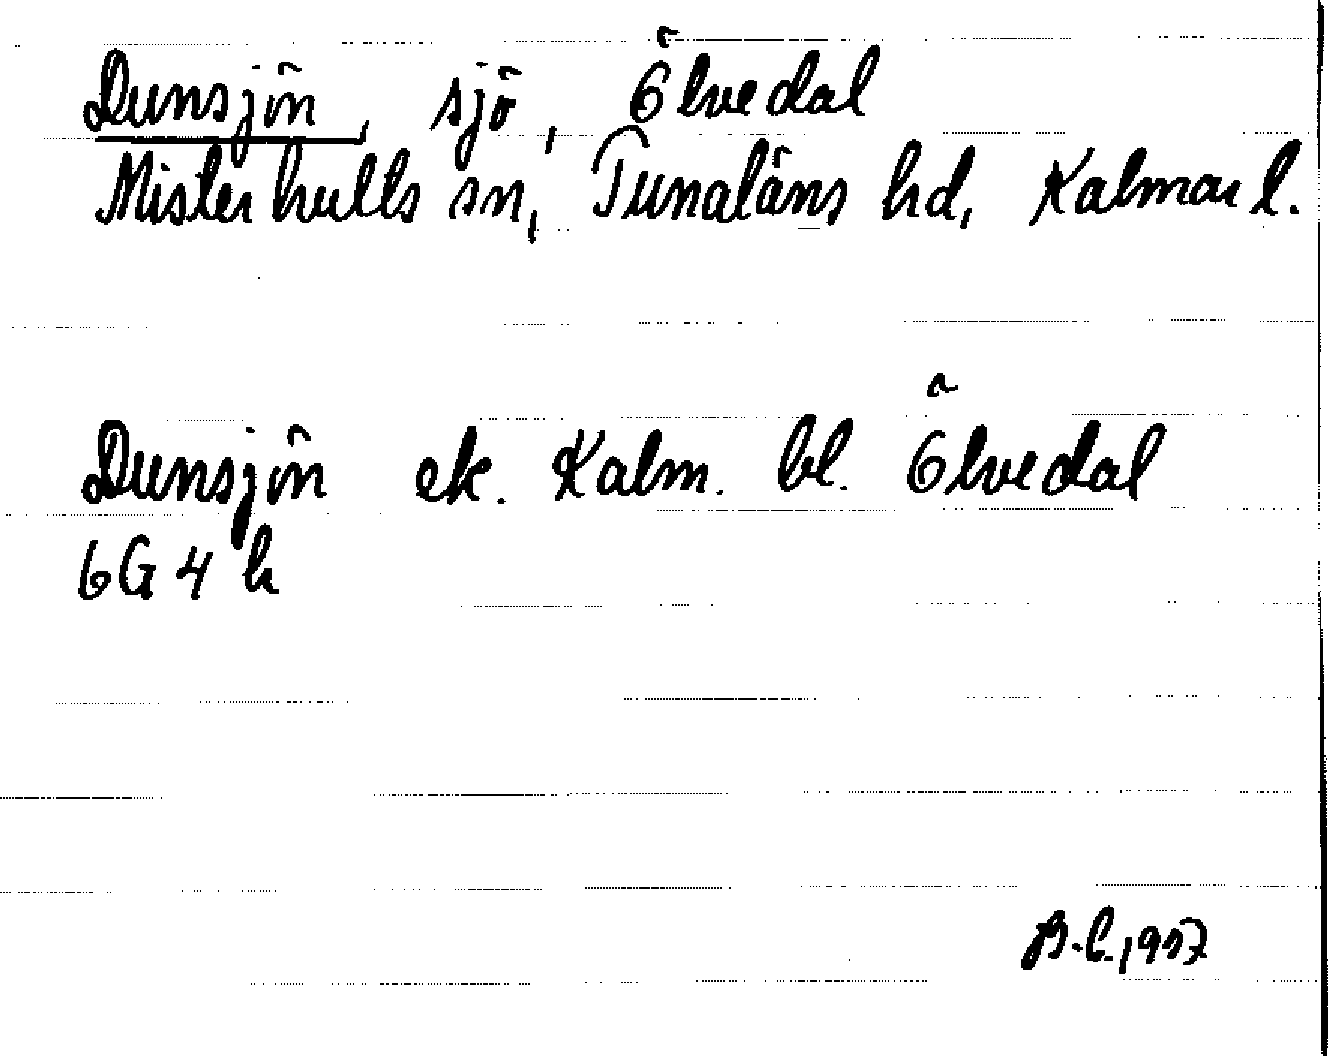 Dunsjön, sjö, Ölvedal
Misterhults sn, Tunaläns hd, Kalmar l.
Dunsjön ek. Kalm. bl. Ölvedal
6G 4 h
1957